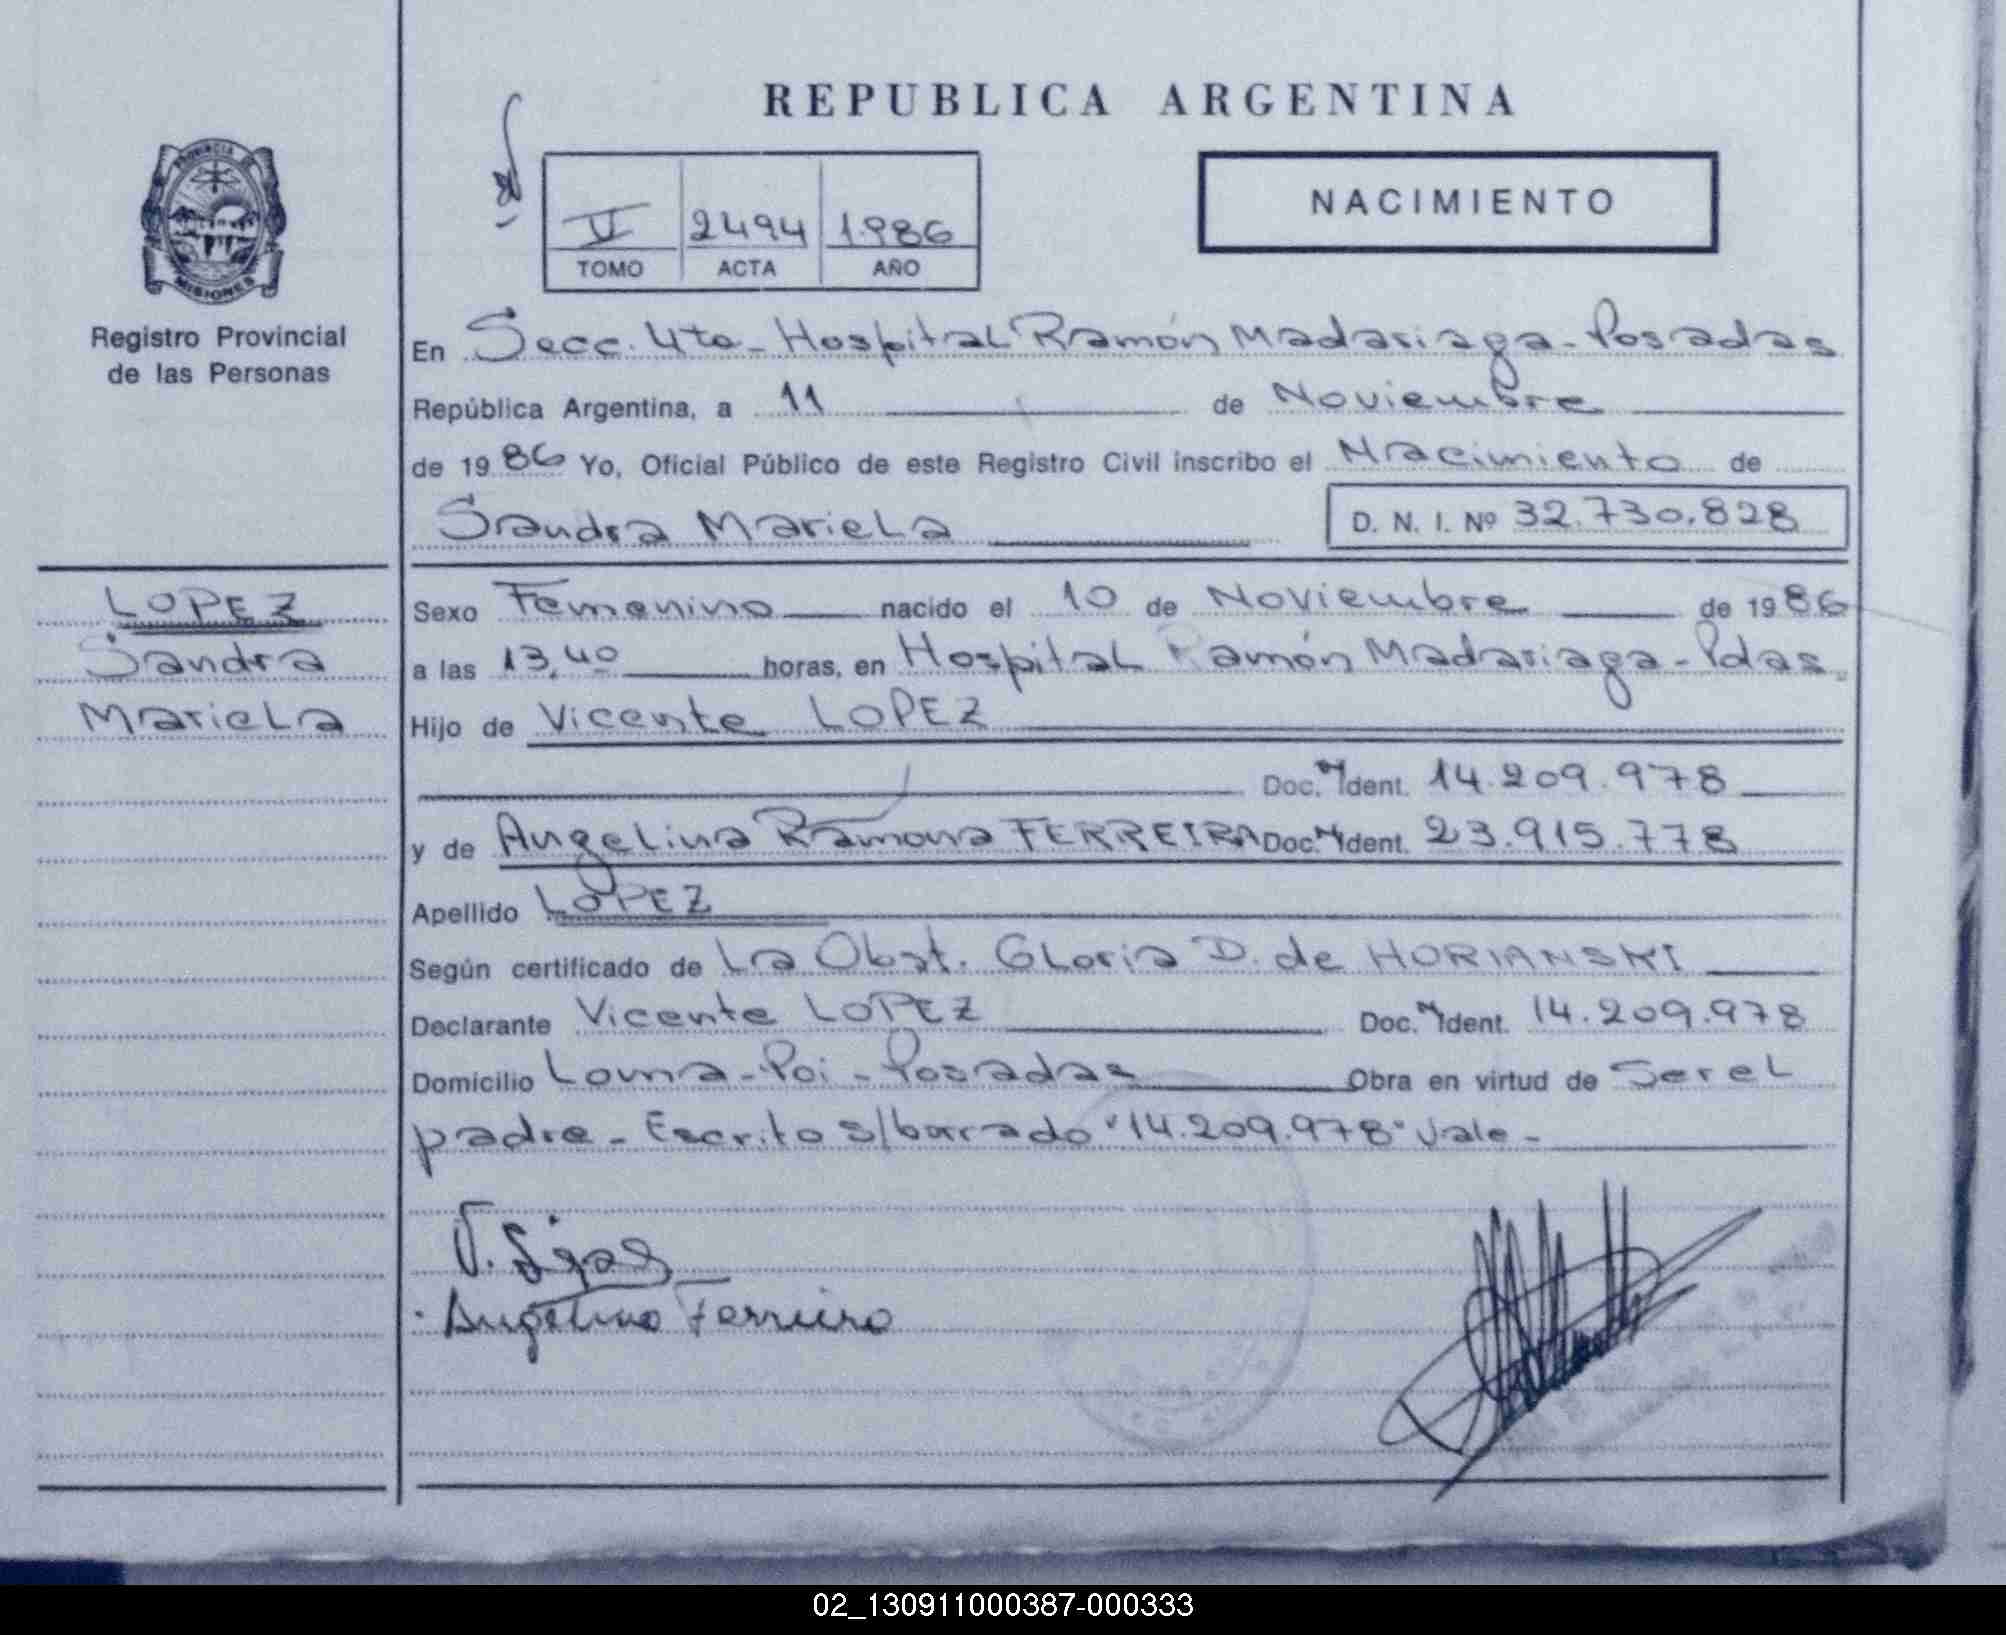 REPUBLICA ARGENTINA
NACIMIENTO
V 2494 1986
TOMO ACTA AÑO
PROVINCIA DE
MISIONES
Registro Provincial
de las Personas
En Secc. 4ta- Hospital Ramón Madariaga- Posadas
República Argentina, a 11 de Noviembre
de 1986 Yo, Oficial Público de este Registro Civil inscribo el Nacimiento de
Sandra Mariela D. N. I. Nº 32.730.828
LOPEZ
Sandra
Mariela
Sexo Femenino nacido el 10 de Noviembre de 1986
a las 13,40 horas, en Hospital Ramón Madariaga- Pdas.
Hijo de Vicente LOPEZ
Doc. Ident. 14.209.978
y de Angelina Ramona FERREIRA Doc. Ident. 23.915.778
Apellido LOPEZ
Según certificado de La Obst. Gloria D. de HORIANSKI
Declarante Vicente LOPEZ Doc. Ident. 14.209.978
Domicilio Loma-Poi- Posadas Obra en virtud de Ser el
padre- Escrito s/barrado "14.209.978" Vale-
Angelina Ferreira
02_130911000387-000333